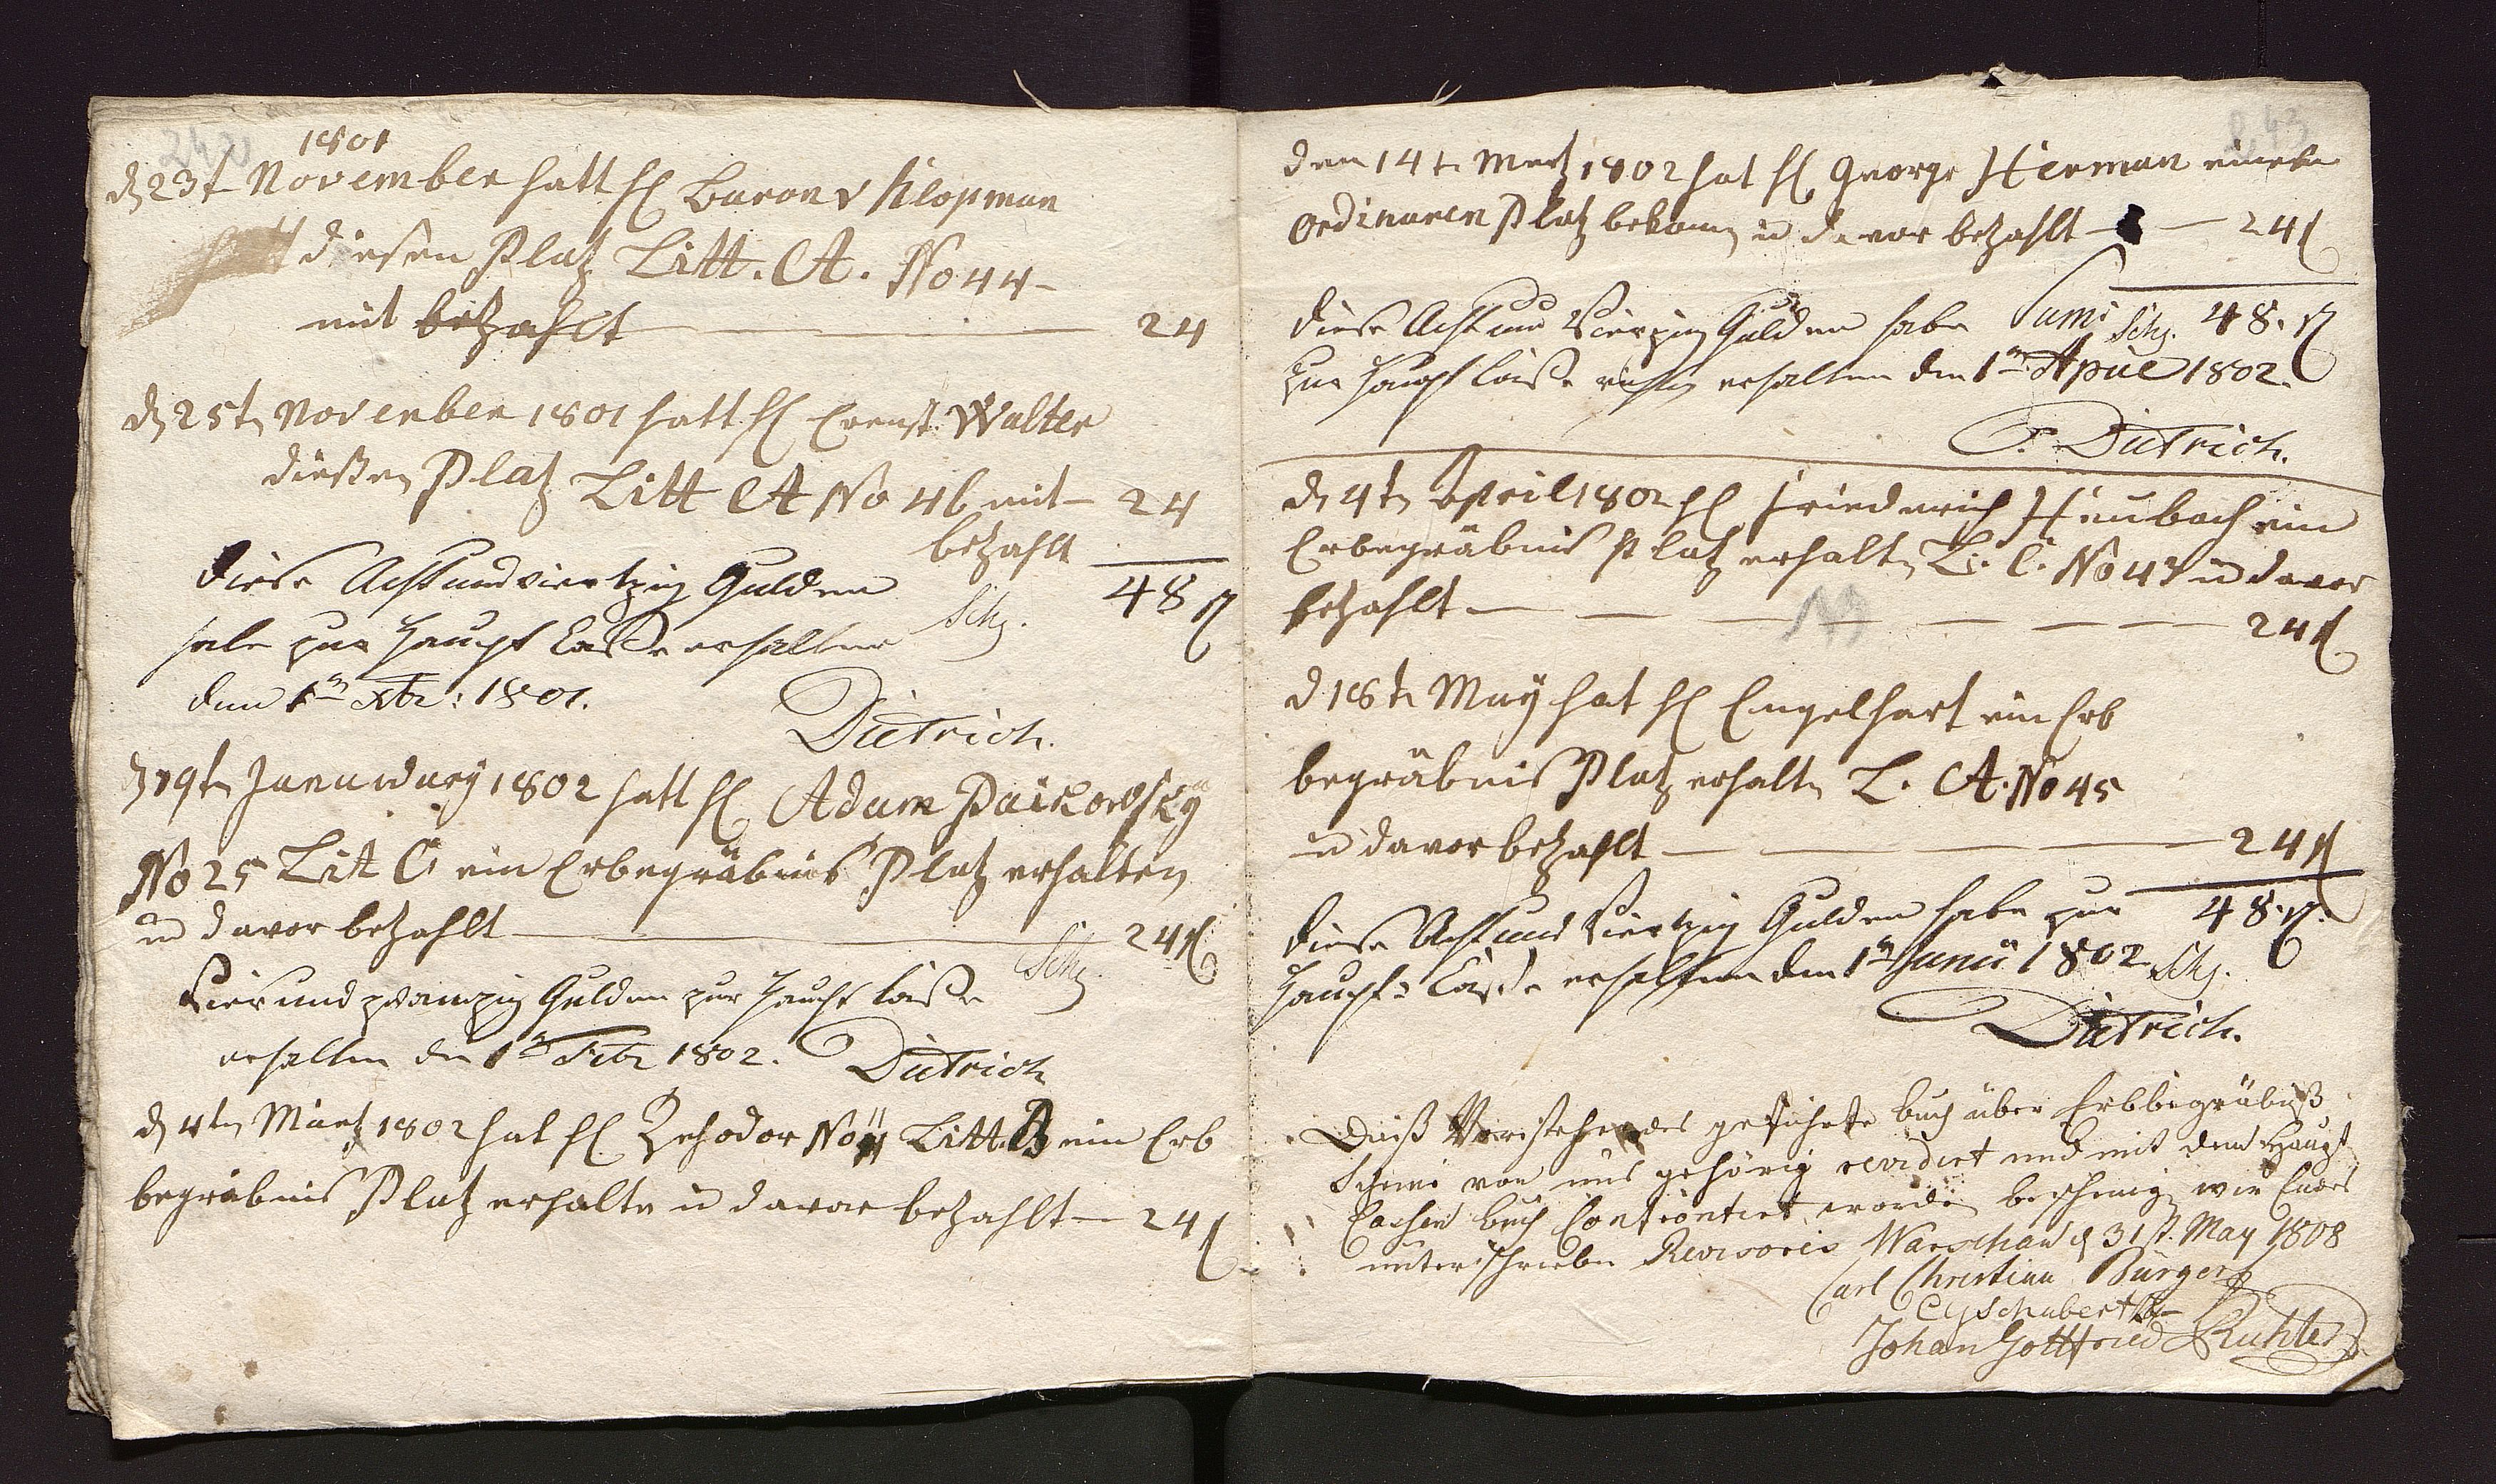 1801
d 23t November hatt H Baron v Klopman
diesen Platz Litt. A. No 44 -
mit bezahlt — 24
d 25tn November 1801 hatt H Ernst Walter
dießen Platz Litt A No 46 mit - 24
bezahlt
Diese Acht und viertzig Gulden Schz. 48 fl
habe zur Haupt Casse erhalten
den 1n Xbr: 1801.
Dietrich.
d 19tn Januwary 1802 hatt H Adam Paikowsky
No 25 Lit C ein Erbegräbnis Platz erhalten
u davor bezahlt — 24 fl
Vier und zwanzig Gulden zur Haupt Casse Schz.
erhalten den 1n Febr 1802. Dietrich
d 4tn Märtz 1802 hat H Zehodor No 11 Litt. B ein Erb
begräbnis Platz erhalte u davor bezahlt — 24 fl
den 14t Mertz 1802 hat H George Herman einen
ordinaren Platz bekom u davor bezahlt — 24 fl
Sume 48. fl
Diese Acht und Vierzig Gulden habe Schz.
zur Haupt Casse richtig erhalten den 1n April 1802.
F. Dietrich.
d 4tn April 1802 H Friederich Heubach ein
Erbegräbnis Platz erhaltn L. C. No 43 u davor
bezahlt — 24 fl
d 18tn May hat H Engelhart ein Erb
begräbnis Platz erhaltn L. A. No 45
u davor bezahlt — 24 fl
Diese Acht und Viertzig Gulden habe zur 48. fl.
Haupt = Casse erhalten den 1n Junii 1802 Schz.
Dietrich.
Daß Vorstehendes geführte buch über Erbbegräbniß
Scheine von uns gehörig revidirt und mit dem Haupt
Cassen buch Confrontirt worden bescheinig wir Endes
unterschriebne Revisores Warschau d 31st. May 1808
Carl Christian Bürger
CG Schubert
Johan Gottfried Richter